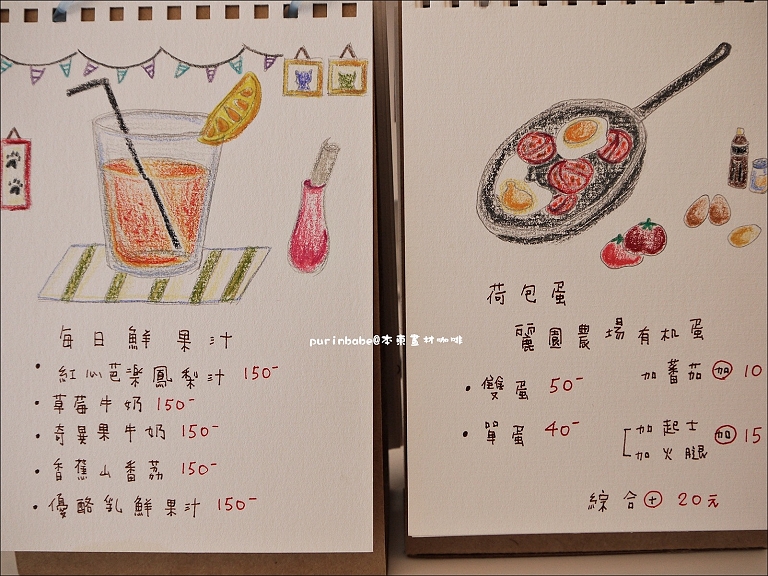 每日鮮果汁
• 紅心芭樂鳳梨汁 150-
• 草莓牛奶 150-
• 奇異果牛奶 150-
• 香蕉山番荔 150-
• 優酪乳鮮果汁 150-
purinbabe@本東畫材咖啡
荷包蛋
麗園農場有机蛋
• 雙蛋 50-
• 單蛋 40-
加蕃茄 加 10
加起士
加火腿 加 15
綜合 + 20元